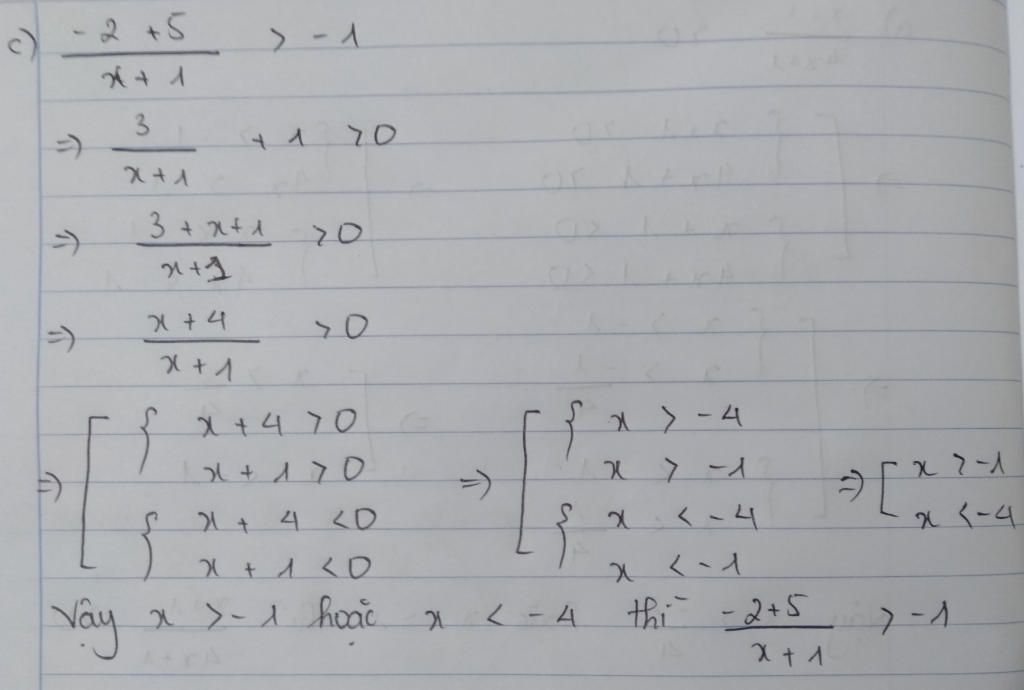 c) \frac{-2+5}{x+1} > -1
=> \frac{3}{x+1} + 1 > 0
=> \frac{3+x+1}{x+1} > 0
=> \frac{x+4}{x+1} > 0
=> [ { x + 4 > 0 => [ { x > -4
x + 1 > 0 x > -1 => [ x > -1
{ x + 4 < 0 { x < -4 x < -4
x + 1 < 0 x < -1
Vậy x > -1 hoặc x < -4 thì \frac{-2+5}{x+1} > -1